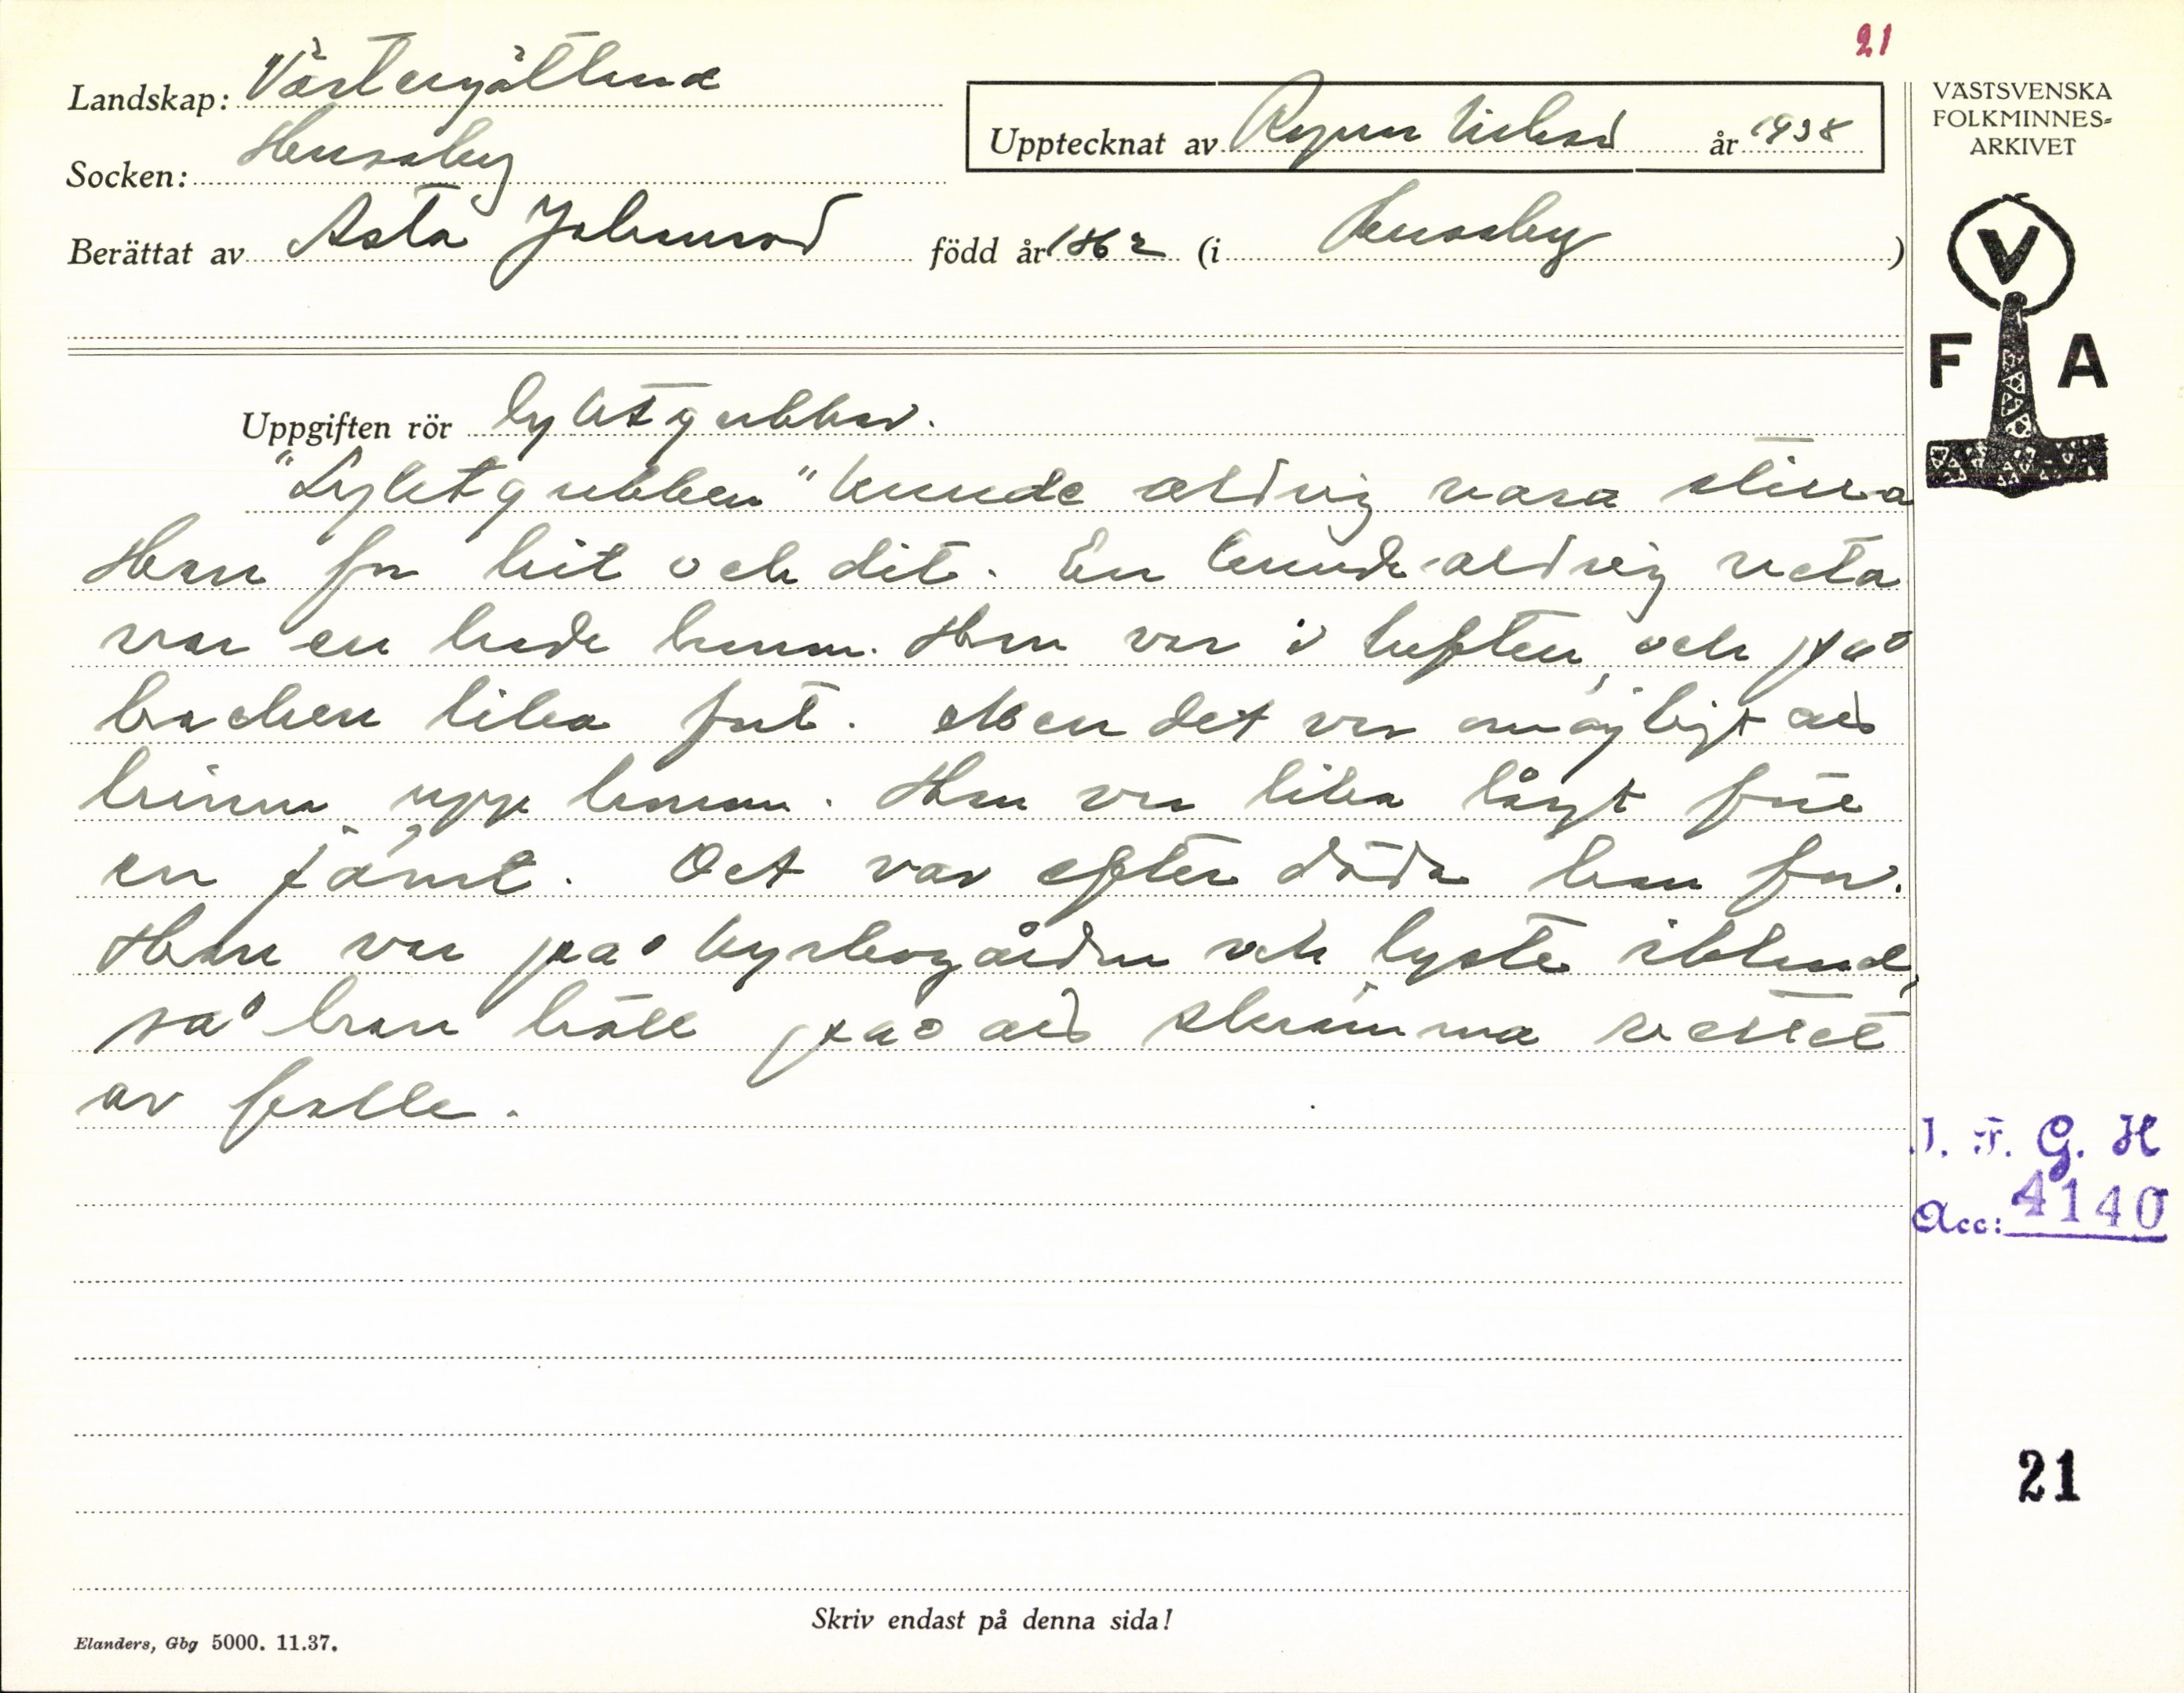 21
Landskap: Västergötland
VÄSTSVENSKA
FOLKMINNES-
ARKIVET
Upptecknat av Ragnar Nilsson år 1938
Socken: Husaby
Berättat av Asta Johansson född år 1862 (i Husaby)
V
F A
Uppgiften rör lyktgubbar.
"Lyktgubben" kunde aldrig vara stilla
Han for hit och dit. En kunde aldrig veta
var en hade honom. Han var i luften, och på
backen lika fort. Men det var omöjligt att
hinna upp honom. Han var lika långt från
en jämt. Det var efter döda han for.
Han var på kyrkogården och lyste ibland,
så han höll på att skrämma vettet
av folk.
I. F. G. H
Acc: 4140
21
Skriv endast på denna sida!
Elanders, Gbg 5000. 11.37.